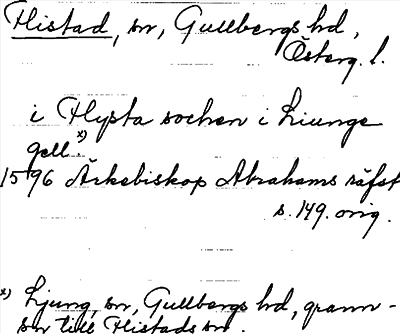 Flistad, sn, Gullbergs hd,
Österg. l.
i Flysta sochen i Liunge
gell. x)
1596 Ärkebiskop Abrahams räfst
s. 149. orig.
x) Ljung, sn, Gullbergs hd, grann-
sn till Flistads sn.